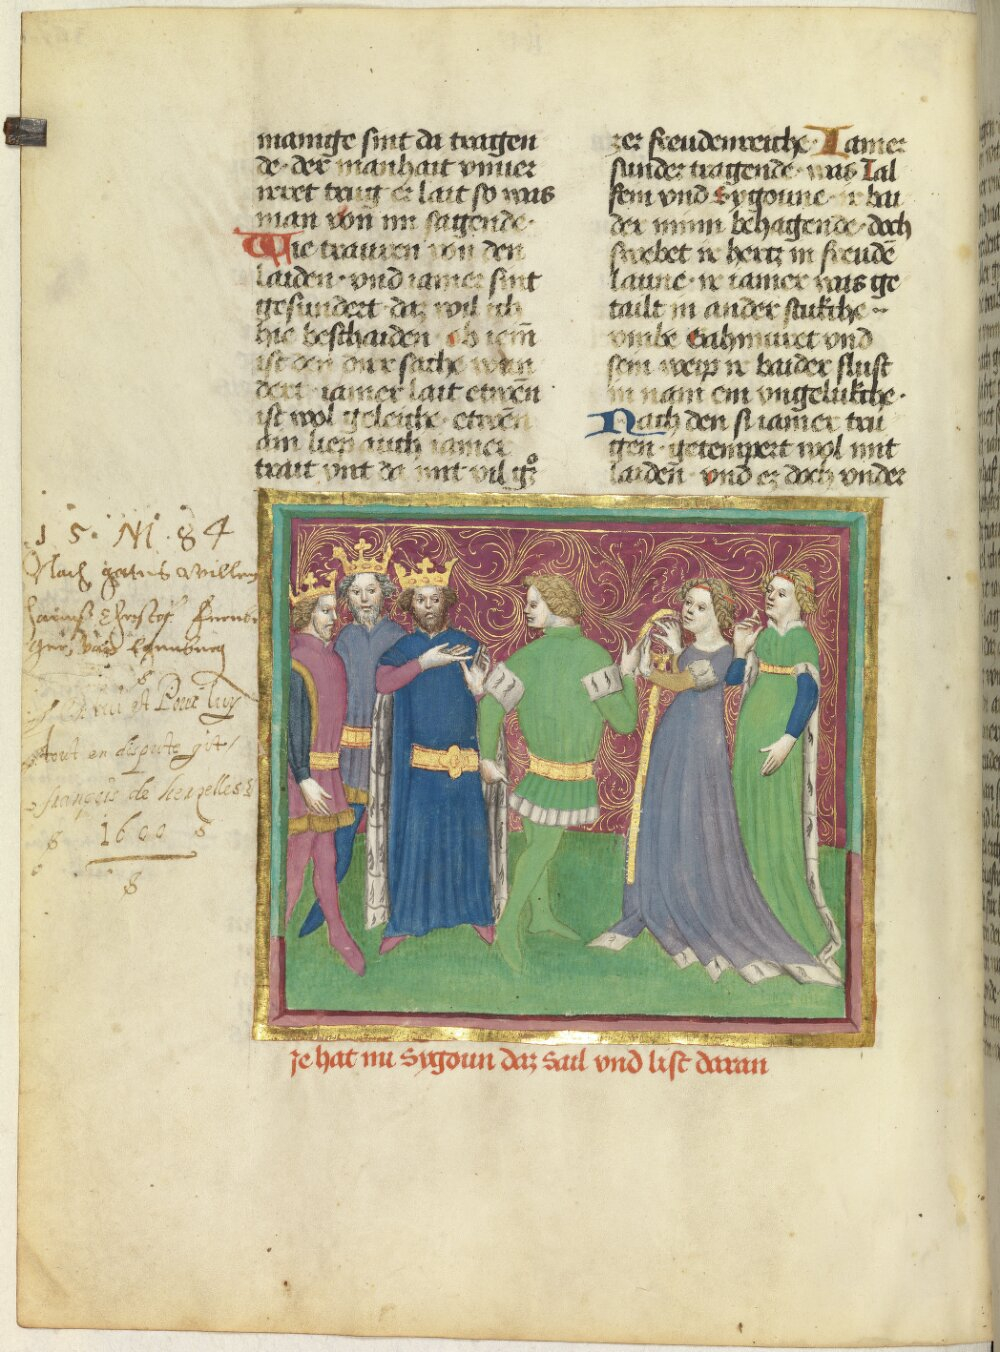 manige sint da tragen
de· der manhait vnuer
irret trug er lait so was
man von im sagende·
Wie trauren von den
laiden· vnd iamer sint
gesundert daz wil ich
hie beschaiden· ob iem̄
ist den dirr sache wun
dert· iamer lait etwēn
ist wol geleiche· etwēn
am liep auch iamer
trait vnt da mit vil gꝛo
zer freudenreiche· Iamer
sunder tragende· was Ial
sein vnd Sygoune· ir bai
der minn behagende· doch
swebet ir hertz in freudē
laune· ir iamer was ge
tailt in ander stukche
vmbe Gahmuret vnd
sein weip ir baider flust
in nam ein vngelukche·
Nach den si iamer tru
gen· getempert wol mit
laiden· vnd ez doch vnder
1 5 · M · 84
Nach gottes willen
tout en dispute git
françois de
1600
ie hat nu Sygoun daz Sail vnd list daran